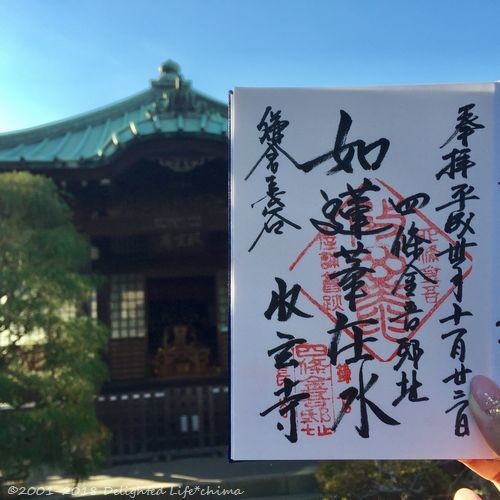 奉拝平成卅年十一月廿二日
四條金吾邸址
如蓮華在水
鎌倉長谷
收玄寺
四條金吾邸址
©2001-2018 Delighted Life*chima